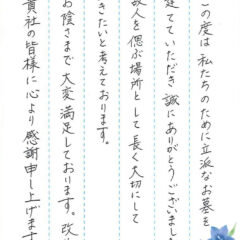 この度は私たちのために立派なお墓を
建てていただき誠にありがとうございまし
故人を偲ぶ場所として長く大切にして
きたいと考えております。
お陰さまで大変満足しております。改
貴社の皆様に心より感謝申し上げます